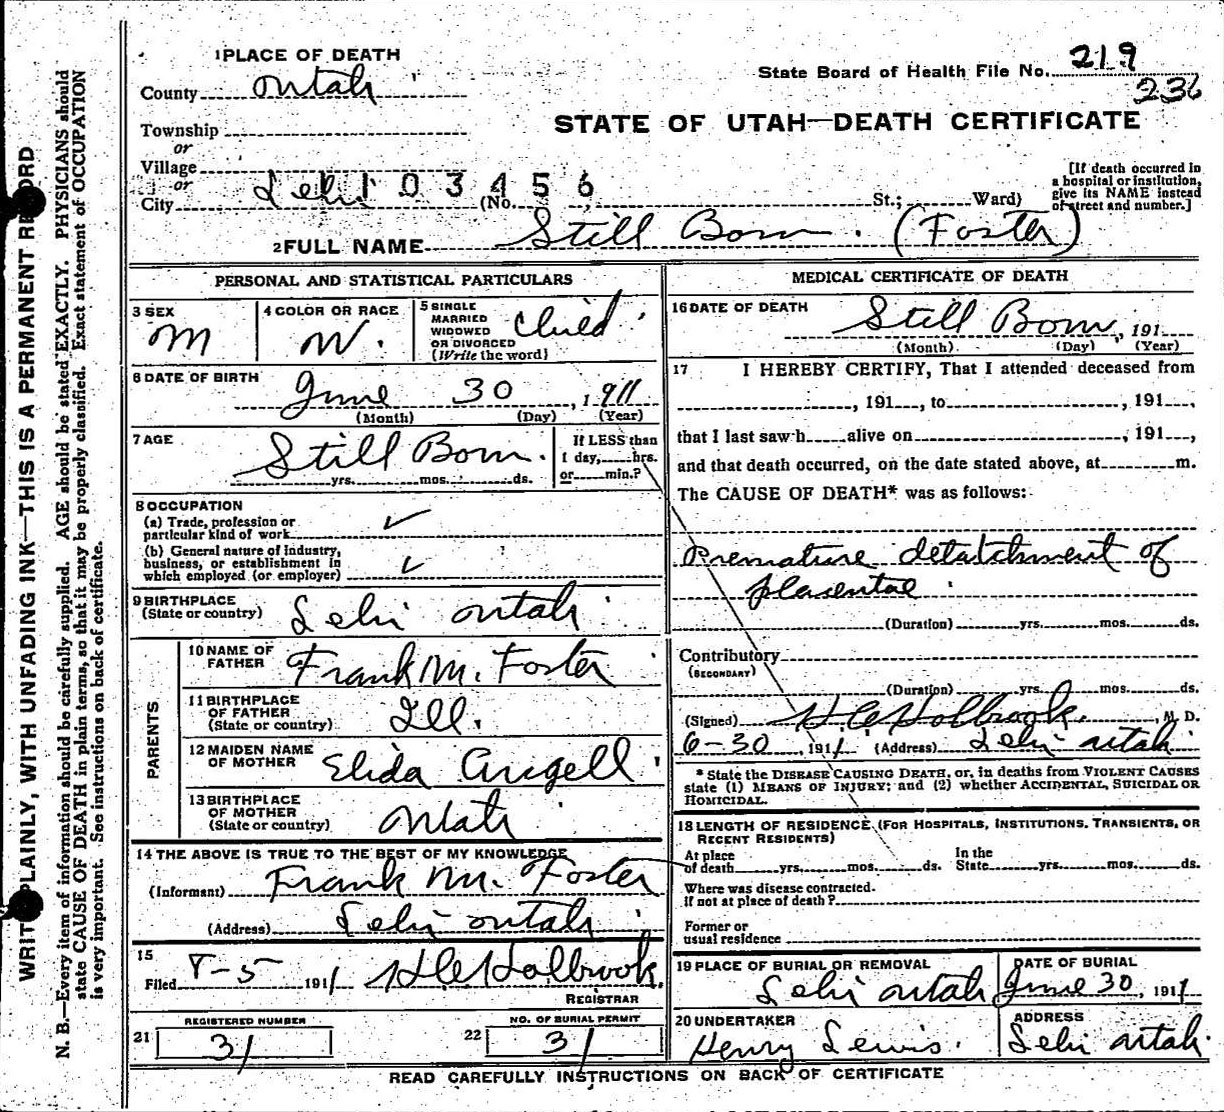 WRITE PLAINLY, WITH UNFADING INK—THIS IS A PERMANENT RECORD
N. B.—Every item of information should be carefully supplied. AGE should be stated EXACTLY. PHYSICIANS should
state CAUSE OF DEATH in plain terms, so that it may be properly classified. Exact statement of OCCUPATION
is very important. See instructions on back of certificate.
1 PLACE OF DEATH
County Utah
Township
or
Village
or
City Lehi 103456 (No. St.; Ward)
State Board of Health File No. 219
236
STATE OF UTAH—DEATH CERTIFICATE
[If death occurred in
a hospital or institution,
give its NAME instead
of street and number.]
2 FULL NAME Still Born. (Foster)
PERSONAL AND STATISTICAL PARTICULARS
3 SEX
M
4 COLOR OR RACE
W.
5 SINGLE
MARRIED
WIDOWED
OR DIVORCED
(Write the word)
Child
6 DATE OF BIRTH
June 30, 1911
(Month) (Day) (Year)
7 AGE
Still Born.
yrs. mos. ds.
If LESS than
1 day, hrs.
or min.?
8 OCCUPATION
(a) Trade, profession or
particular kind of work ✓
(b) General nature of Industry,
business, or establishment in
which employed (or employer) ✓
9 BIRTHPLACE
(State or country) Lehi Utah
PARENTS
10 NAME OF
FATHER Frank M. Foster
11 BIRTHPLACE
OF FATHER
(State or country) Ill.
12 MAIDEN NAME
OF MOTHER Elida Angell
13 BIRTHPLACE
OF MOTHER
(State or country) Utah
14 THE ABOVE IS TRUE TO THE BEST OF MY KNOWLEDGE
(Informant) Frank M. Foster
(Address) Lehi Utah
15
Filed 8-5 1911 H C Holbrook.
REGISTRAR
21 REGISTERED NUMBER
31
22 NO. OF BURIAL PERMIT
31
MEDICAL CERTIFICATE OF DEATH
16 DATE OF DEATH
Still Born, 191
(Month) (Day) (Year)
17 I HEREBY CERTIFY, That I attended deceased from
, 191 , to , 191 ,
that I last saw h alive on , 191 ,
and that death occurred, on the date stated above, at m.
The CAUSE OF DEATH* was as follows:
Premature detatchment of
placentae
(Duration) yrs. mos. ds.
Contributory
(SECONDARY)
(Duration) yrs. mos. ds.
(Signed) H C Holbrook, M. D.
6-30, 1911 (Address) Lehi Utah
* State the DISEASE CAUSING DEATH, or, in deaths from VIOLENT CAUSES
state (1) MEANS OF INJURY; and (2) whether ACCIDENTAL, SUICIDAL OR
HOMICIDAL.
18 LENGTH OF RESIDENCE (FOR HOSPITALS, INSTITUTIONS, TRANSIENTS, OR
RECENT RESIDENTS)
At place
of death yrs. mos. ds. In the
State yrs. mos. ds.
Where was disease contracted.
if not at place of death?
Former or
usual residence
19 PLACE OF BURIAL OR REMOVAL
Lehi Utah
DATE OF BURIAL
June 30, 1911
20 UNDERTAKER
Henry Lewis.
ADDRESS
Lehi Utah.
READ CAREFULLY INSTRUCTIONS ON BACK OF CERTIFICATE